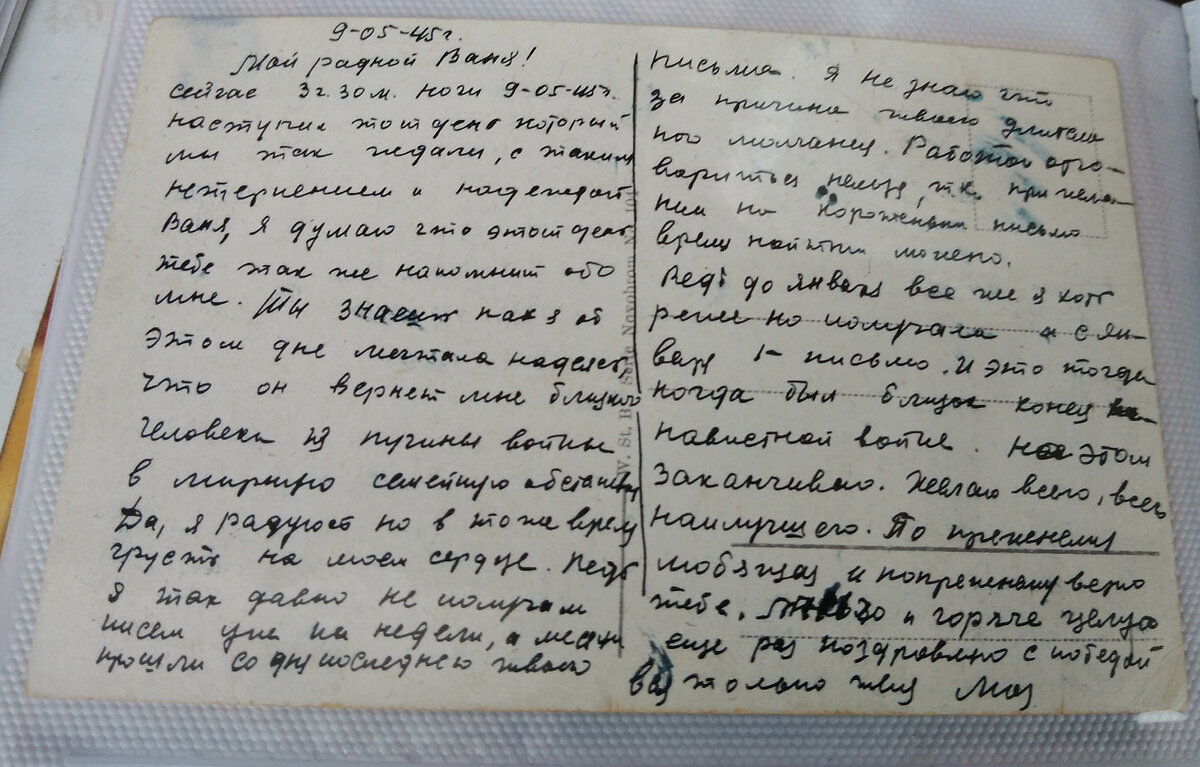 9-05-45г.
Мой радной Ваня!
Сейчас 3ч. 30 м. ночи 9-05-45г.
наступил этот день который
мы так ждали, с таким
нетерпением и надеждой
Ваня, я думаю что этот день
тебе так же напомнит обо
мне. Ты знаешь как я об
этом дне мечтала надеясь
что он вернет мне близкого
человека из пучины войны
в мирную семейную обстановку
Да, я радуюсь но в тоже время
грусть на моем сердце. Ведь
я так давно не получаю
писем уже не недели, а месяц
прошли со дня последнего твоего
письма. Я не знаю что
за причина твоего длитель
ного молчания. Работой отго-
вориться нельзя, т.к. при жела-
нии на коротенькое письмо
время найти можно.
Ведь до января все же я хоть
реже но получала а с ян-
варя 1- письмо. И это тогда
когда был близок конец не-
навистной войне. На этом
заканчиваю. Желаю всего, всего
наилучшего. По прежнему
любящая и попрежнему верно
тебе. и горяче целую
еще раз поздровляю с победой
вся только твоя Мая
W. St. B. Serie Novobrom N